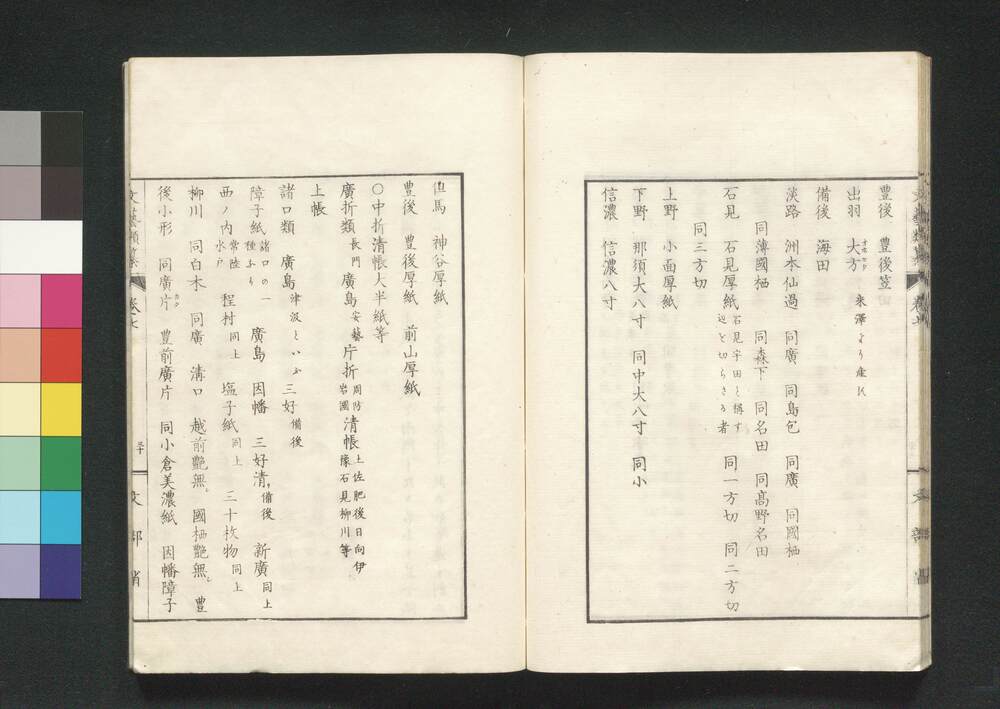 豊後　豊後笠田
出羽　大方オホカタ　米澤より産ス
備後　海田
淡路　洲本仙過　同廣　同島包　同廣　同國栖
同薄國栖　同森下　同名田　同髙野名田
石見　石見厚紙石見宇田と構す辺を切らさる者　同一方切　同二方切
同三方切
上野　小面厚紙
下野　那須大八寸　同中大八寸　同小
信濃　信濃八寸
但馬　神谷厚紙
豊後　豊後厚紙　前山厚紙
〇中折清帳大半紙等
廣折類長門　廣島安藝　片折周防岩國　清帳土佐肥後日向伊豫石見柳川等
上帳
諸口類　廣島津汲といふ　三好備後
障子紙諸口の一種ふり　廣島　因幡　三好清備後　新廣同上
西ノ内常陸水戸　程村同上　塩子紙同上　三十枚物同上
柳川　同白木　同廣　溝口　越前艷無　國栖艷無　豊
後小形　同廣片カタ　豊前廣片　同小倉美濃紙　因幡障子
文藝類纂　卷七
文部省